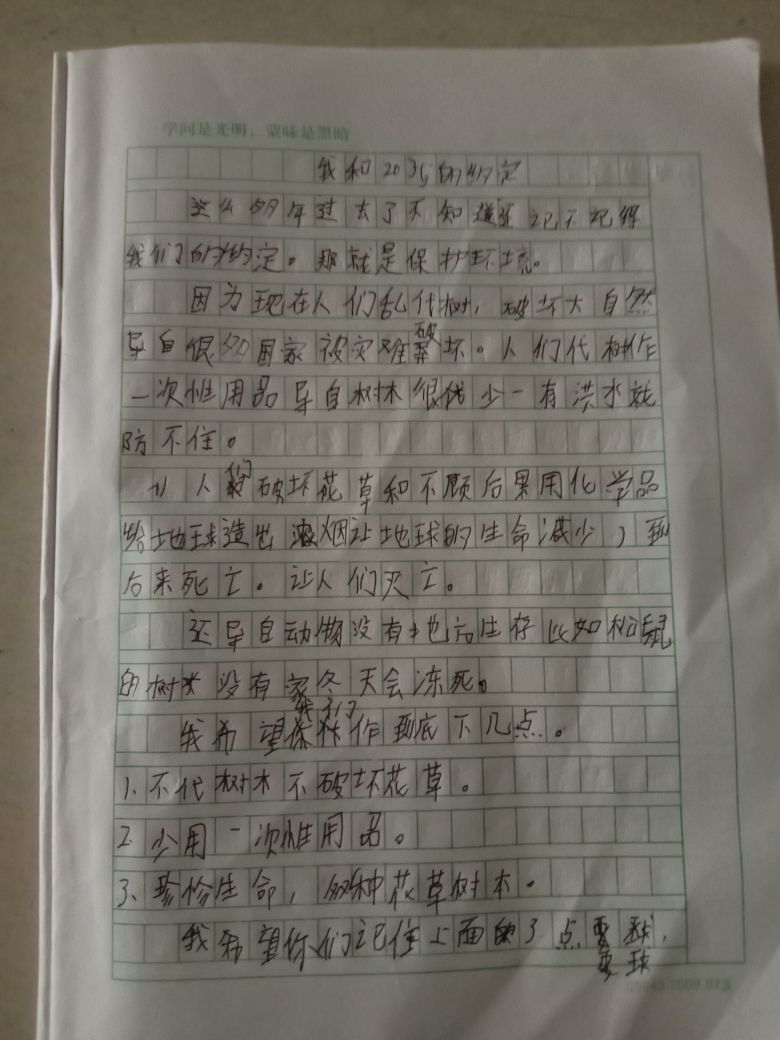 学问是光明，蒙昧是黑暗
我和2035的约定
这么多年过去了不知道还记不记得
我们的约定。那就是保护环境。
因为现在人们乱代树，破坏大自然
导自很多国家被灾难破坏。人们代树作
一次性用品导自树林很优少一有洪水就
防不住。
人们破坏花草和不顾后果用化学品
给地球造出浓烟让地球的生命减少，到
后来死亡。让人们灭亡。
还导自动物没有地方生存比如松鼠
的树 没有家冬天会冻死。
我希望我们作到底下几点。
1.不代树木不破坏花草。
2.少用一次性用品。
3、珍惜生命，多种花草树本。
我希望你们记住上面的3点要求，
要球